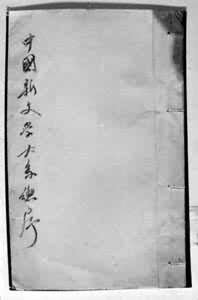 中國新文学大系總序